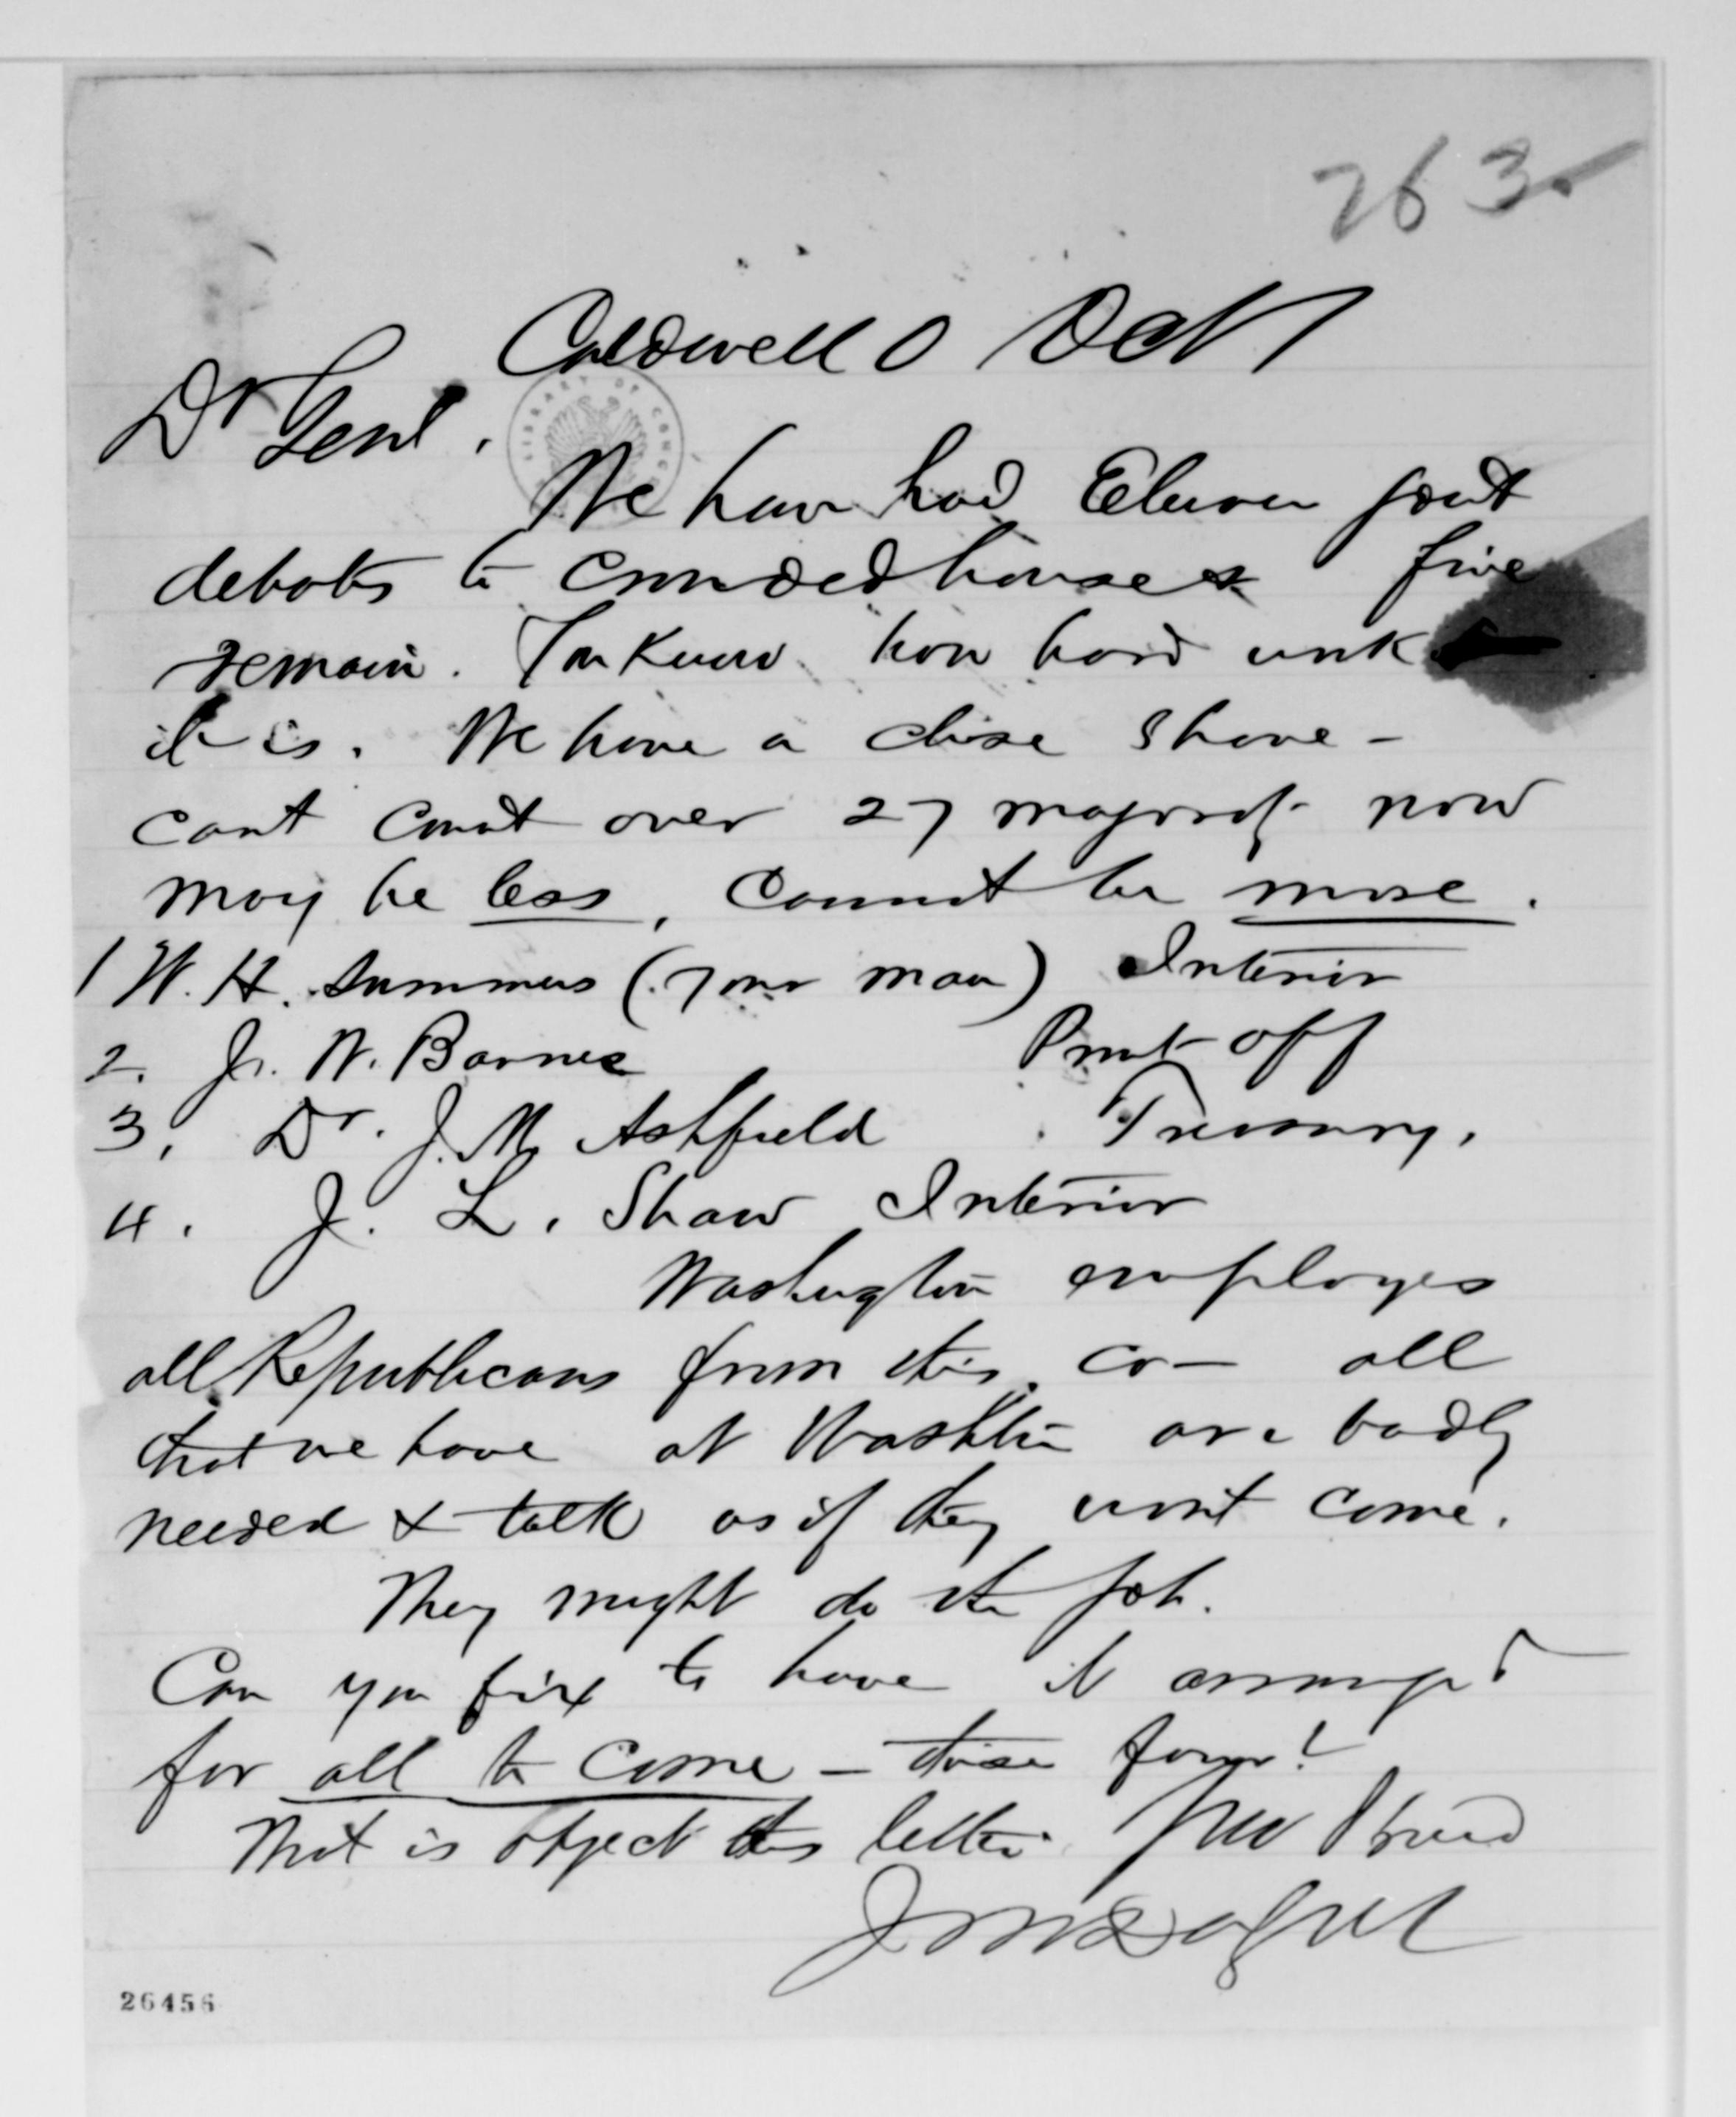 263.
Caldwell O Oct 7
Dr Genl.
LIBRARY OF CONG
We have had Eleven joint
debates to crowded houses five
remain. You Know how hard work
it is. We have a close shave -
cant count over 27 majority now
may be less, cannot be more.
1 W. H. Summers (your man) Interior
2. J. W. Barnes Print off
3. Dr. J. M. Ashfield Treasury.
4. J. L. Shaw Interior
Washington employes
all Republicans from this co- all
that we have at Washtn are badly
needed & talk as if they wont come.
They might do the job.
Can you fix to have it arranged
for all to come - these four?
That is object this letter. Your friend
26456